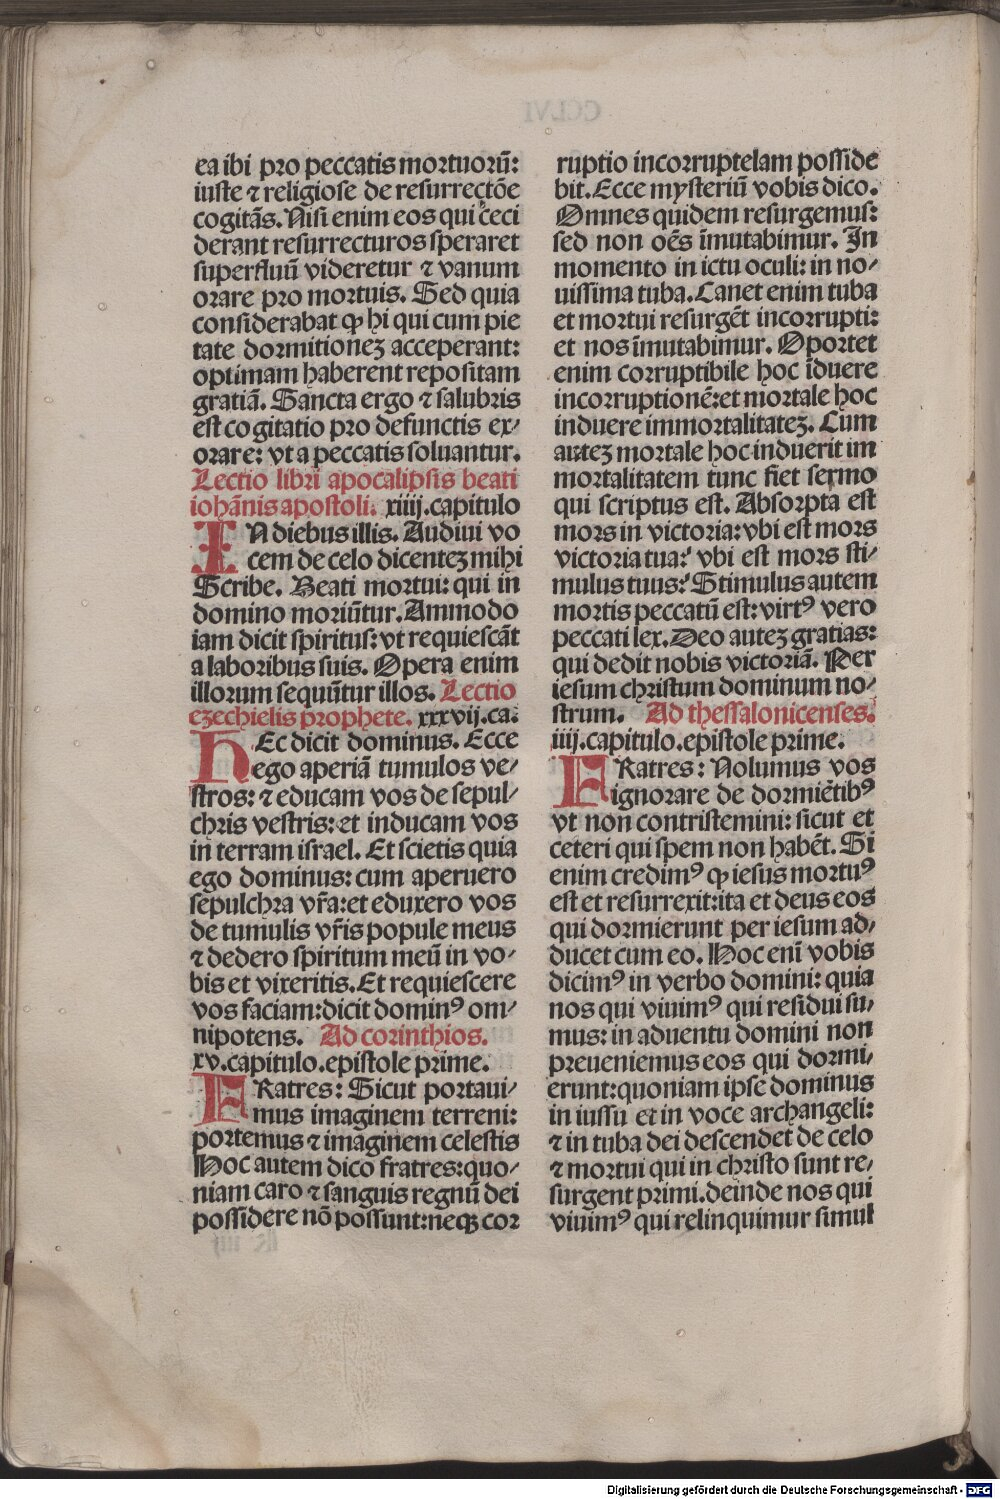 ea ibi pro peccatis mortuoꝝ̃:
iuste ⁊ religiose de resurrectõe
cogitãs. Nisi enim eos qui ceci
derant resurrecturos speraret
superfluũ videretur ⁊ vanum
orare pro mortuis. Sed quia
considerabat ꝙ hi qui cum pie
tate dormitionez acceperant:
optimam haberent repositam
gratiã. Sancta ergo ⁊ salubris
est cogitatio pro defunctis ex⸗
orare: vt a peccatis soluantur.
Lectio libri apocalipsis beati
iohãnis apostoli. xiiij.capitulo
IN diebus illis. Audiui vo
cem de celo dicentez mihi
Scribe. Beati mortui: qui in
domino moriũtur. Ammodo
iam dicit spiritus: vt requiescãt
a laboribus suis. Opera enim
illorum sequũtur illos. Lectio
ezechielis prophete. xxxvij.ca.
HEc dicit dominus. Ecce
ego aperiã tumulos ve⸗
stros: ⁊ educam vos de sepul⸗
chris vestris: et inducam vos
in terram israel. Et scietis quia
ego dominus: cum aperuero
sepulchra vr̃a: et eduxero vos
de tumulis vr̃is popule meus
⁊ dedero spiritum meũ in vo⸗
bis et vixeritis. Et requiescere
vos faciam: dicit dominꝰ om⸗
nipotens. Ad corinthios.
xv.capitulo.epistole prime.
FRatres: Sicut portaui⸗
mus imaginem terreni:
portemus ⁊ imaginem celestis
Hoc autem dico fratres: quo⸗
niam caro ⁊ sanguis regnũ dei
possidere nõ possunt: neqꝫ cor
ruptio incorruptelam posside
bit. Ecce mysteriũ vobis dico.
Omnes quidem resurgemus:
sed non oẽs ĩmutabimur. In
momento in ictu oculi: in no⸗
uissima tuba. Canet enim tuba
et mortui resurgẽt incorrupti:
et nos ĩmutabimur. Oportet
enim corruptibile hoc ĩduere
incorruptionẽ: et mortale hoc
induere immortalitatez. Cum
autez mortale hoc induerit im
mortalitatem tunc fiet sermo
qui scriptus est. Absorpta est
mors in victoria: vbi est mors
victoria tua? vbi est mors sti⸗
mulus tuus? Stimulus autem
mortis peccatũ est: virtꝰ vero
peccati lex. Deo autez gratias:
qui dedit nobis victoriã. Per
iesum christum dominum no⸗
strum. Ad thessalonicenses.
iiij.capitulo.epistole prime.
FRatres: Nolumus vos
ignorare de dormiẽtibꝰ
vt non contristemini: sicut et
ceteri qui spem non habẽt. Si
enim credimꝰ ꝙ iesus mortuꝰ
est et resurrexit: ita et deus eos
qui dormierunt per iesum ad⸗
ducet cum eo. Hoc enĩ vobis
dicimꝰ in verbo domini: quia
nos qui viuimꝰ qui residui su⸗
mus: in aduentu domini non
preueniemus eos qui dormi⸗
erunt: quoniam ipse dominus
in iussu et in voce archangeli:
⁊ in tuba dei descendet de celo
⁊ mortui qui in christo sunt re⸗
surgent primi. deinde nos qui
viuimꝰ qui relinquimur simul
Digitalisierung gefördert durch die Deutsche Forschungsgemeinschaft - DFG